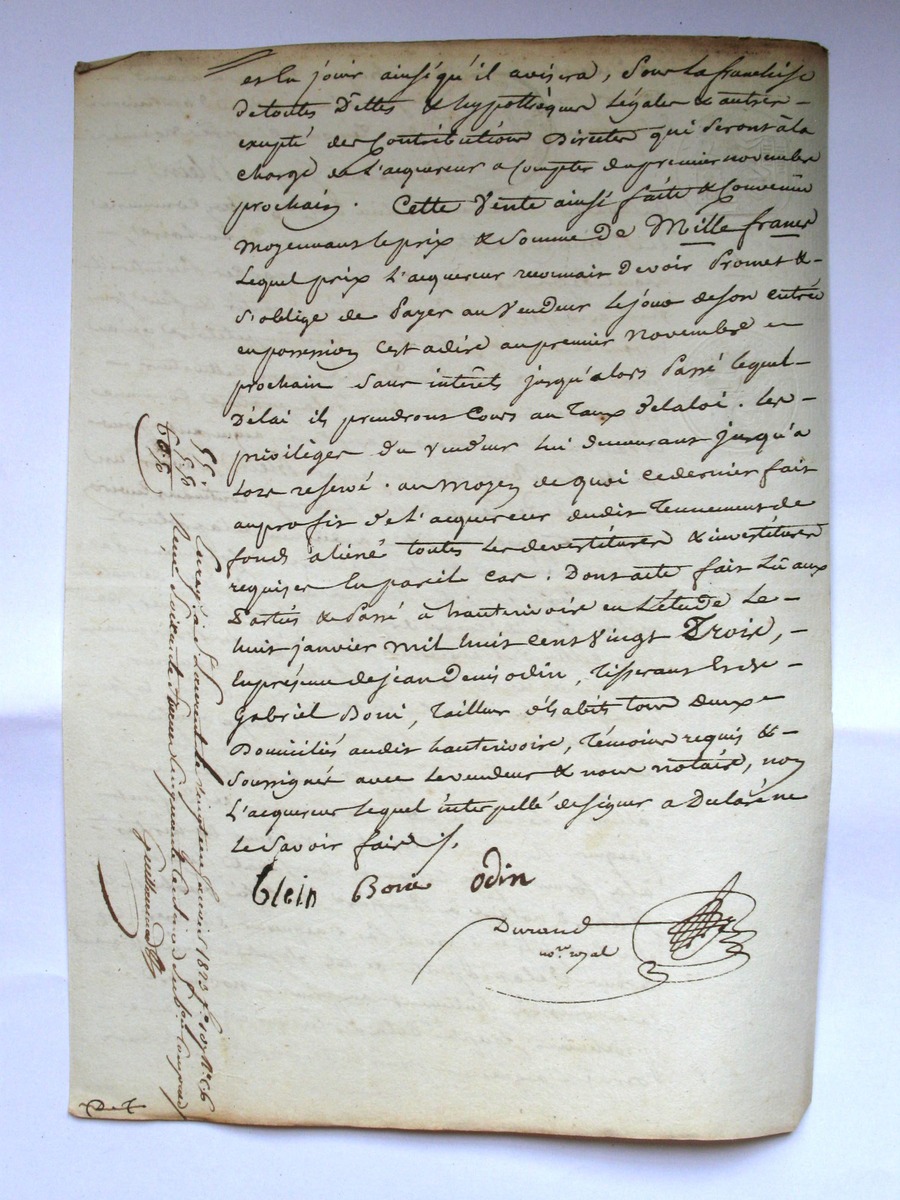 et en jouir ainsi qu'il avisera, sous la franchise
de toutes Dettes & hypothèques légales & autres
excepté des Contributions Directes qui seront à la
charge de l'acquereur a Compter du premier novembre
prochain. Cette Vente ainsi faite & Convenue
moyennant le prix & Somme de Mille francs
Lequel prix L'acquereur reconnait devoir Promet &
s'oblige de Payer au Vendeur le jour de son entrée
en possession C'est adire au premier Novembre
prochain sans intérêts jusqu'alors Passé lequel
Délai ils prendront Cours au Taux de la loi. les
privilèges du Vendeur lui demeurant jusqu'a
lors reservé. au Moyen de quoi ce dernier fait
au profit de L'acquereur dudit Tennement de
fond aliéné toutes les devestitures & investitures
requises En pareil cas. Dont acte fait Lû aux
Parties & Passé à hauterivoire en L'étude Le
huit janvier mil huit cent Vingt Trois,
En présence de jean Denis odin, Tisserant & de
Gabriel Boni, Tailleur d'habits tous deux
Domiciliés audit hauterivoire, Témoins requis &
Soussignés avec le vendeur & nous notaire, non
L'acquereur lequel interpellé de signer a Declaré ne
le Savoir faire
Blein Boni odin
Durand
no.re royal
55
5.50
60,50
Enreg. à St Laurent le vingt un janvier 1823 f.o 107 N.o C.6
Reçu Soixante francs Cinquante Centimes Subvon Comprise
Guillermand